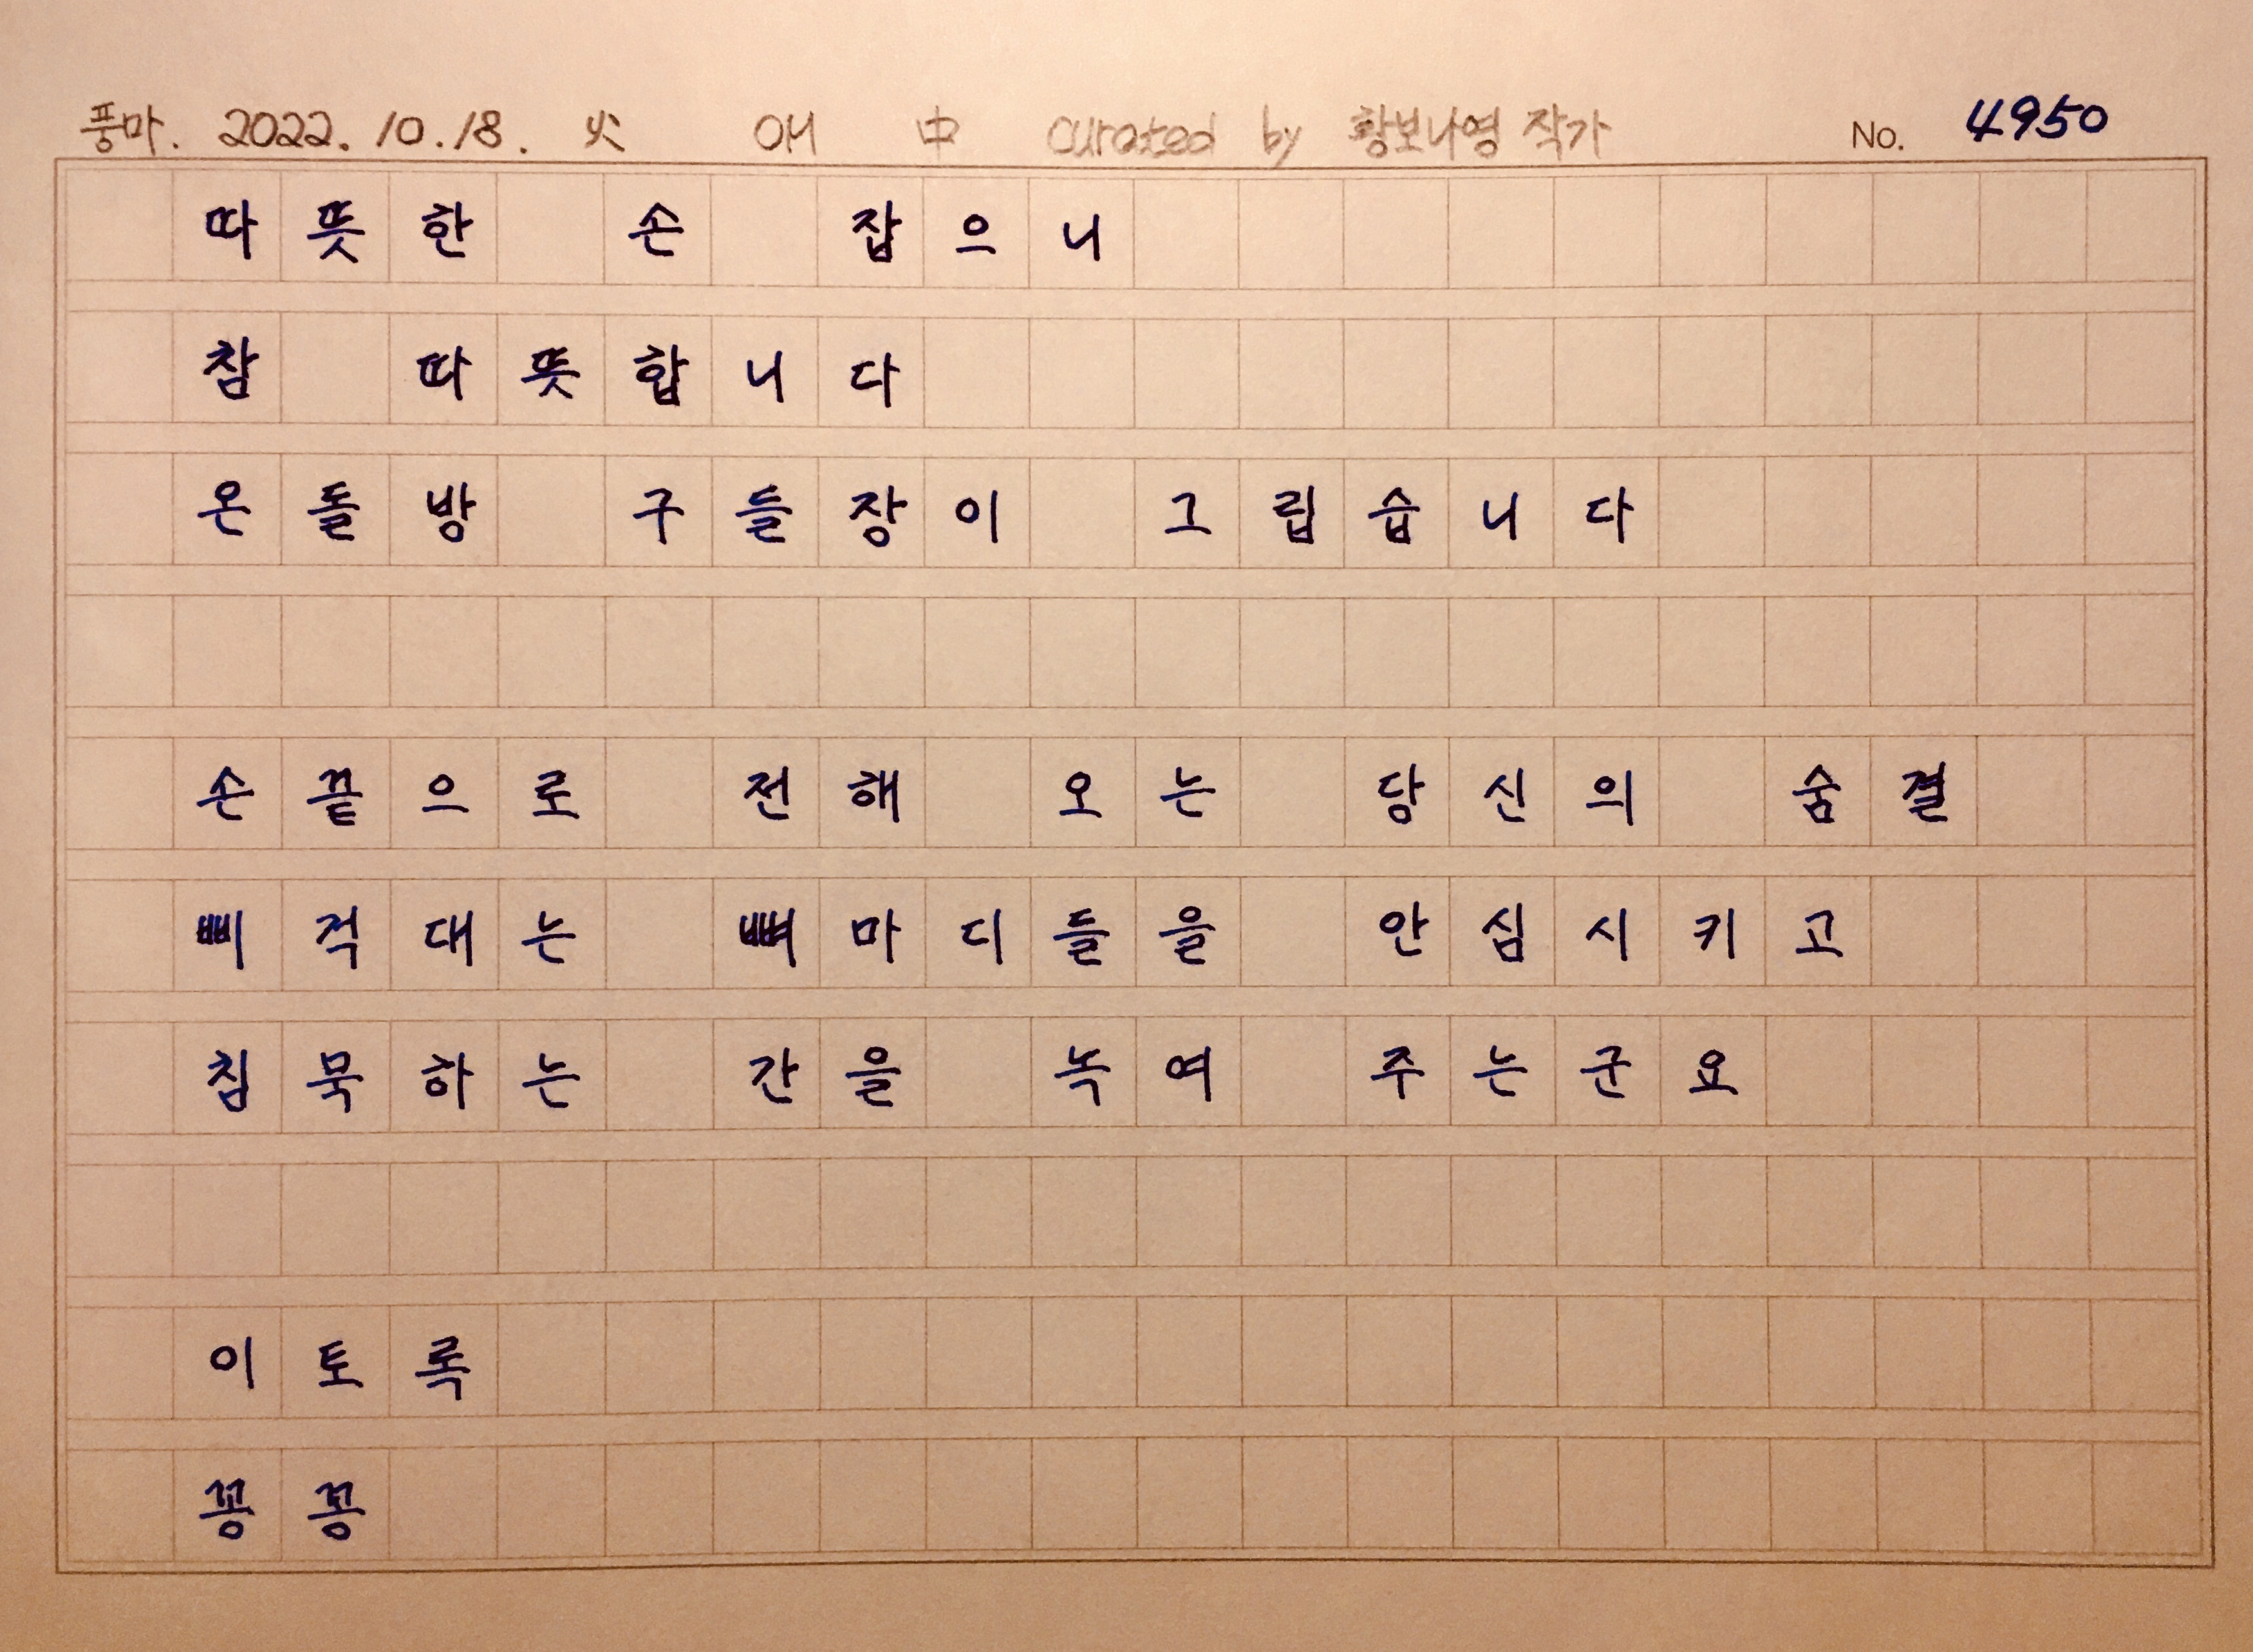 풍마. 2022. 10. 18. 火 OH 中 curated by 황보나영 작가 No. 4950
따뜻한 손 잡으니
참 따뜻합니다
온돌방 구들장이 그립습니다
손끝으로 전해 오는 당신의 숨결
삐걱대는 뼈마디들을 안심시키고
침묵하는 간을 녹여 주는군요
이토록
꽁꽁